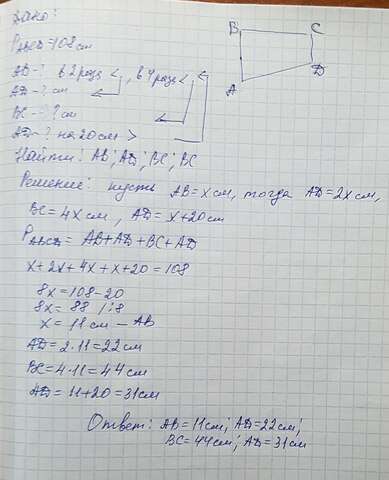 Дано:
B C
P ABCD = 108 см
AB - ? в 2 раза <, в 4 раза <
D
AD - ? см
A
BC - ? см
AD - ? на 20 см >
Найти: AB; AD; BC; BC
Решение: пусть AB = x см, тогда AD = 2x см,
BC = 4x см, AD = x + 20 см
P ABCD = AB + AD + BC + AD
x + 2x + 4x + x + 20 = 108
8x = 108 - 20
8x = 88 /:8
x = 11 см - AB
AD = 2 · 11 = 22 см
BC = 4 · 11 = 44 см
AD = 11 + 20 = 31 см
Ответ: AB = 11 см; AD = 22 см;
BC = 44 см; AD = 31 см